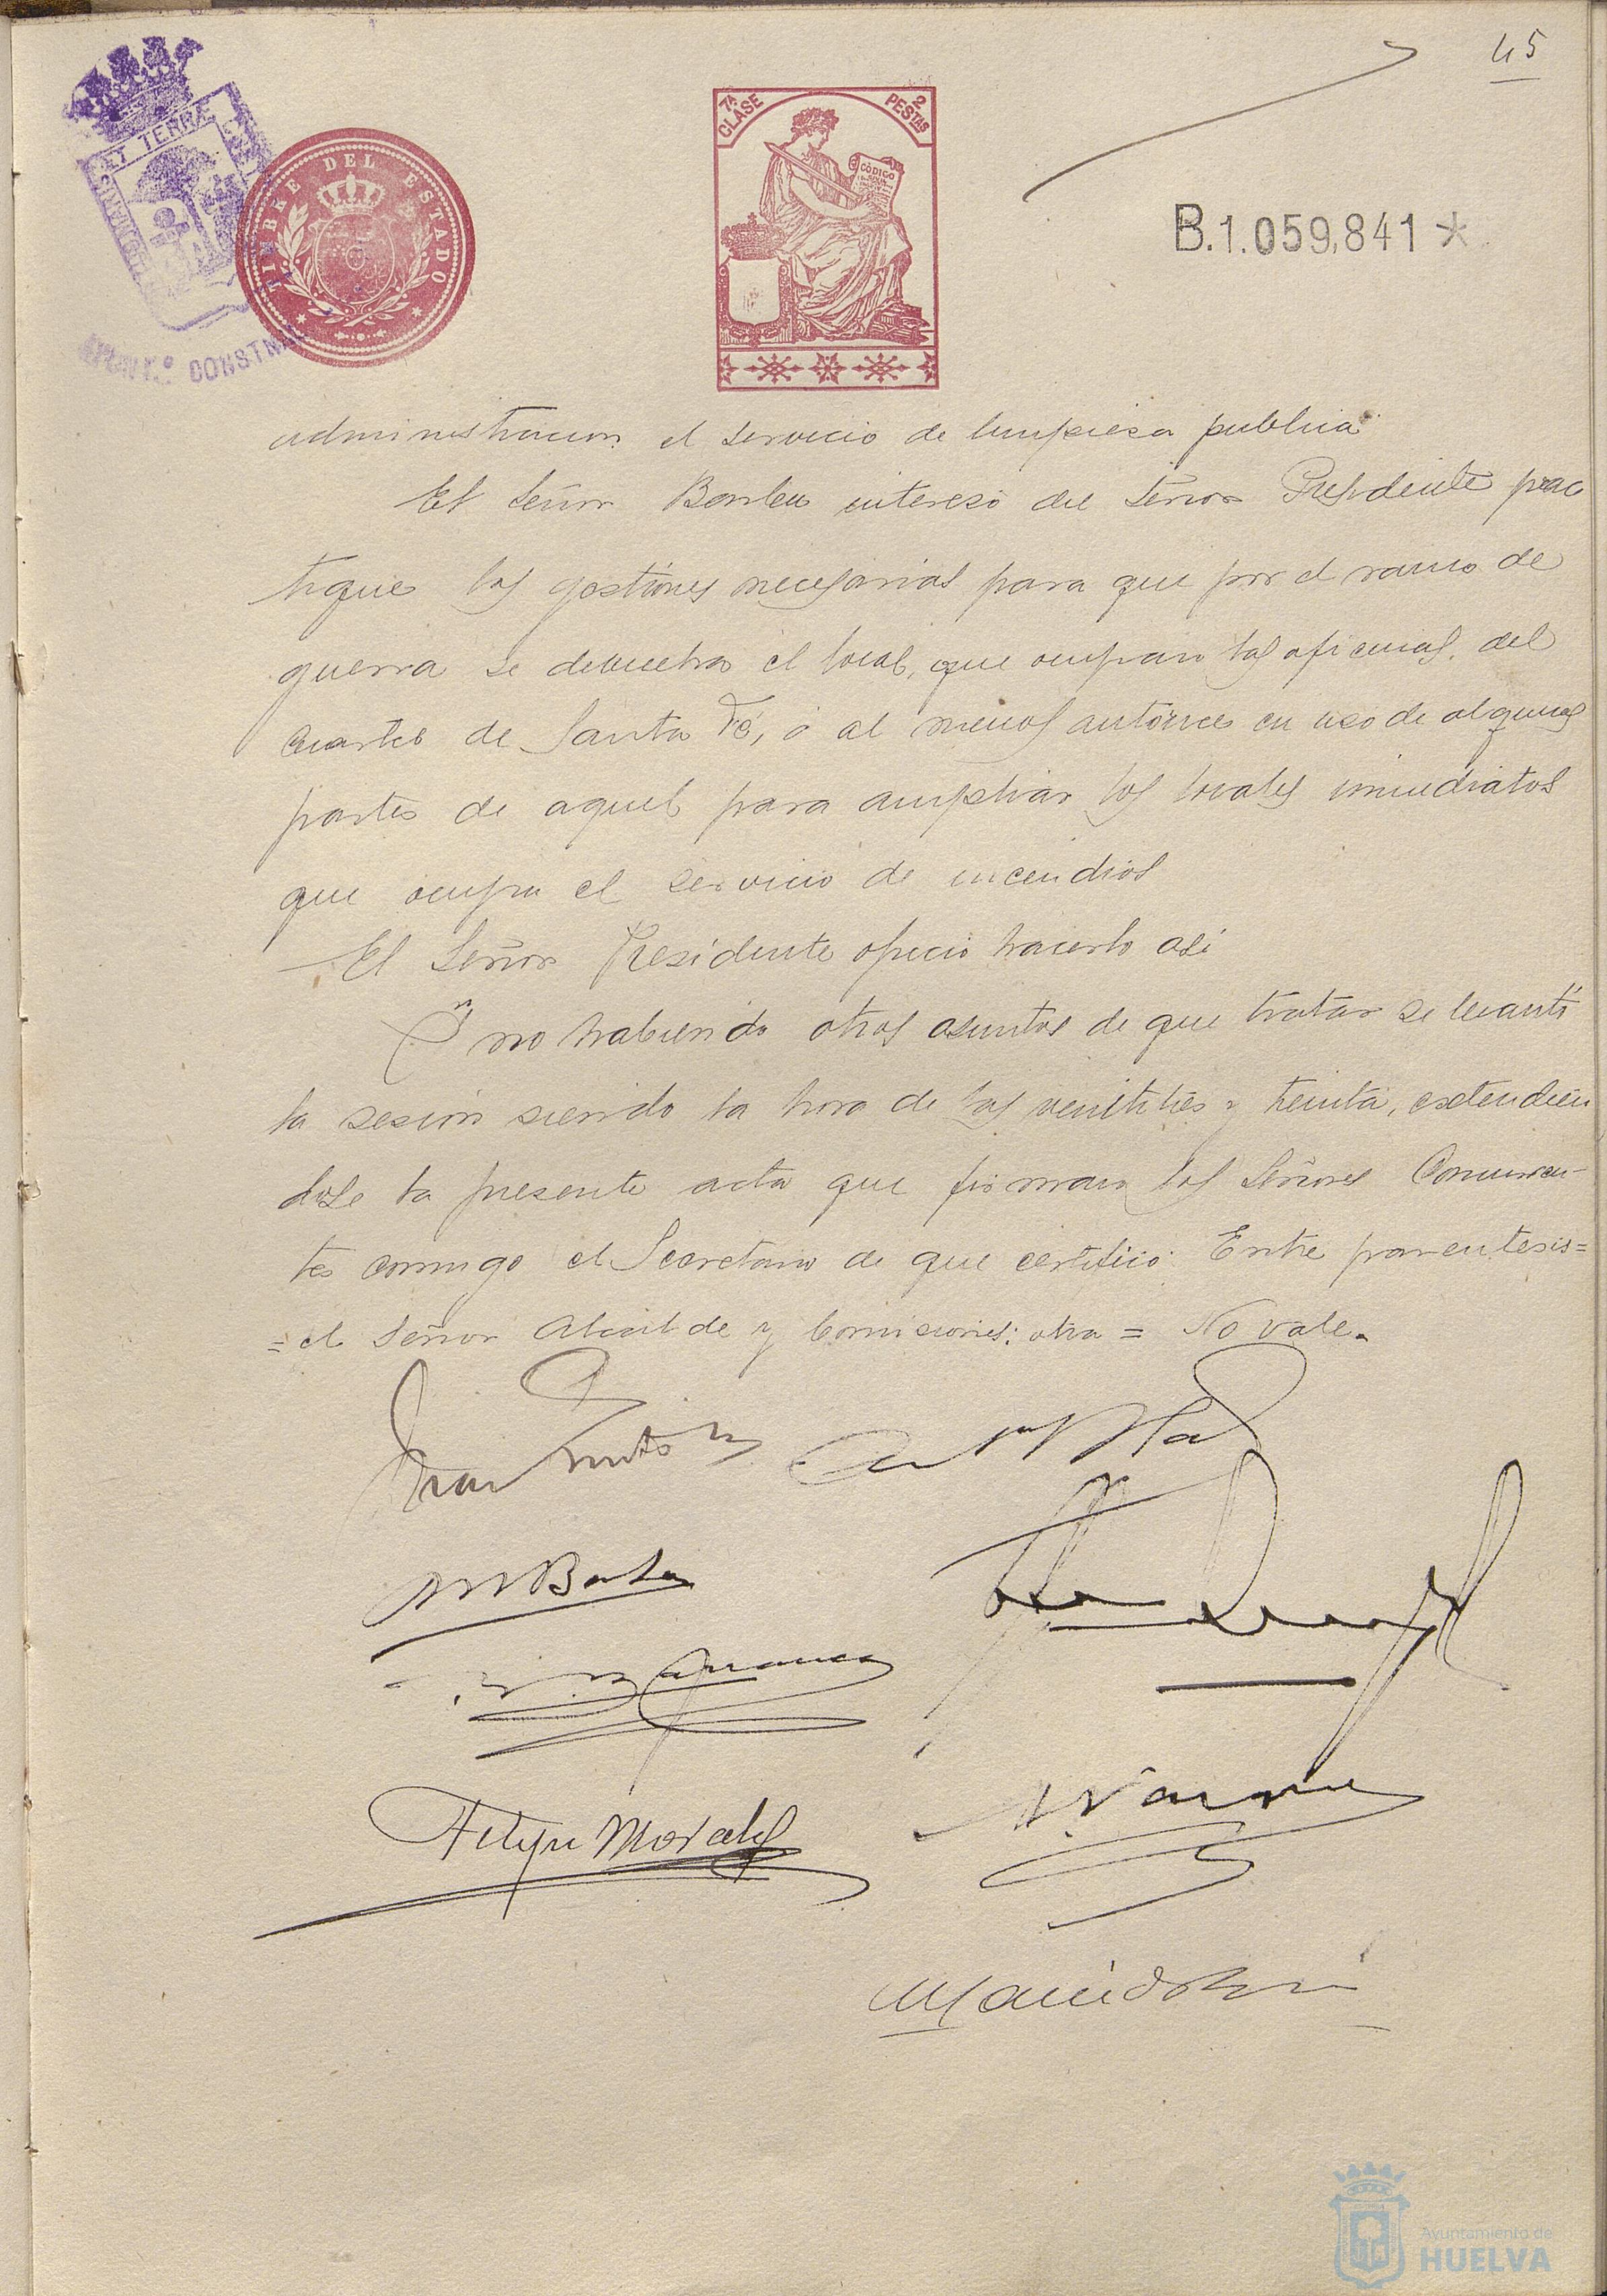 45
7ª CLASE
2 PESTAS
CÓDIGO
TIMBRE DEL ESTADO
ET TERRÆ
CONSTNAL
B.1.059,841*
administracion el servicio de limpieza publica
El Señor interesó del Señor Presidente prac
tique las gestiones necesarias para que por el ramo de
guerra se devuelva el local, que ocupan las oficinas, del
cuartel de Santa Fé, ó al menos autorice en uso de algunas
partes de aquel para ampliar los locales inmediatos
que ocupa el servicio de incendios
El Señor Presidente ofreció hacerlo asi
Y no habiendo otros asuntos de que tratar se levantó
la sesión siendo la hora de las veintitres y treinta, extendien
dose la presente acta que firman los Señores Concurren-
tes conmigo el Secretario de que certifico. Entre parentesis=
=el Señor Alcalde y Comisiones: otra = No vale.
Felipe Morales
Ayuntamiento de
HUELVA